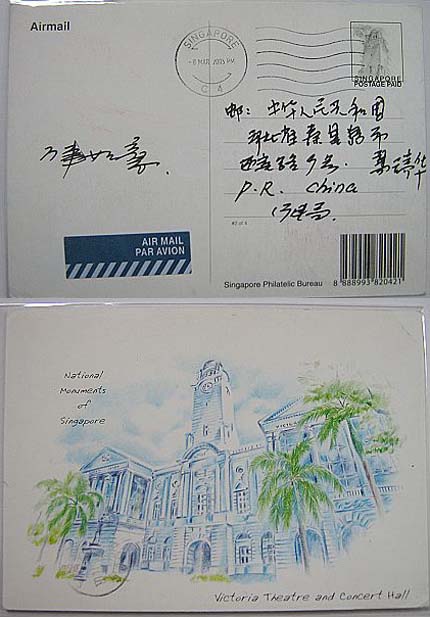 Airmail
SINGAPORE
MAR 2005 PM
C 4
SINGAPORE
POSTAGE PAID
邮: 中华人民共和国
河北省秦皇岛市
万事如意
P.R. China
#2 of 4
AIR MAIL
PAR AVION
Singapore Philatelic Bureau
8 888993 820421
National
Monuments
of
Singapore
Victoria Theatre and Concert Hall